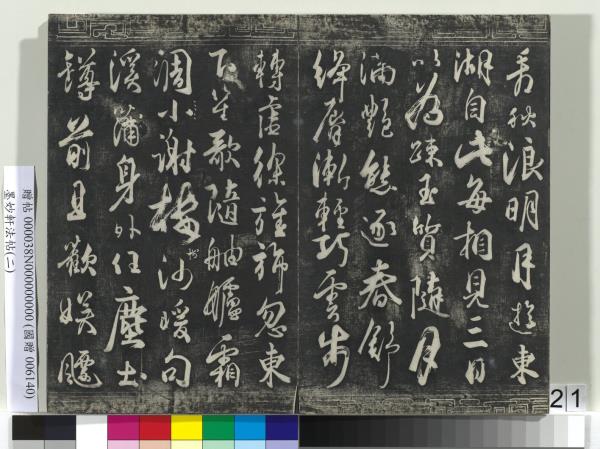 看秋浪明月遊東
湖自此每相見三日
以為疎玉質隨月
滿艷態逐春舒
絳脣漸輕巧雲步
轉虛徐旌旆忽東
下笙歌隨舳艫霜
凋小謝樓沙暖句
溪蒲身外任塵土
罇前且歡娛飄
贈帖 000038N000000000 (國贈 006140)
墨妙軒法帖(二)
21